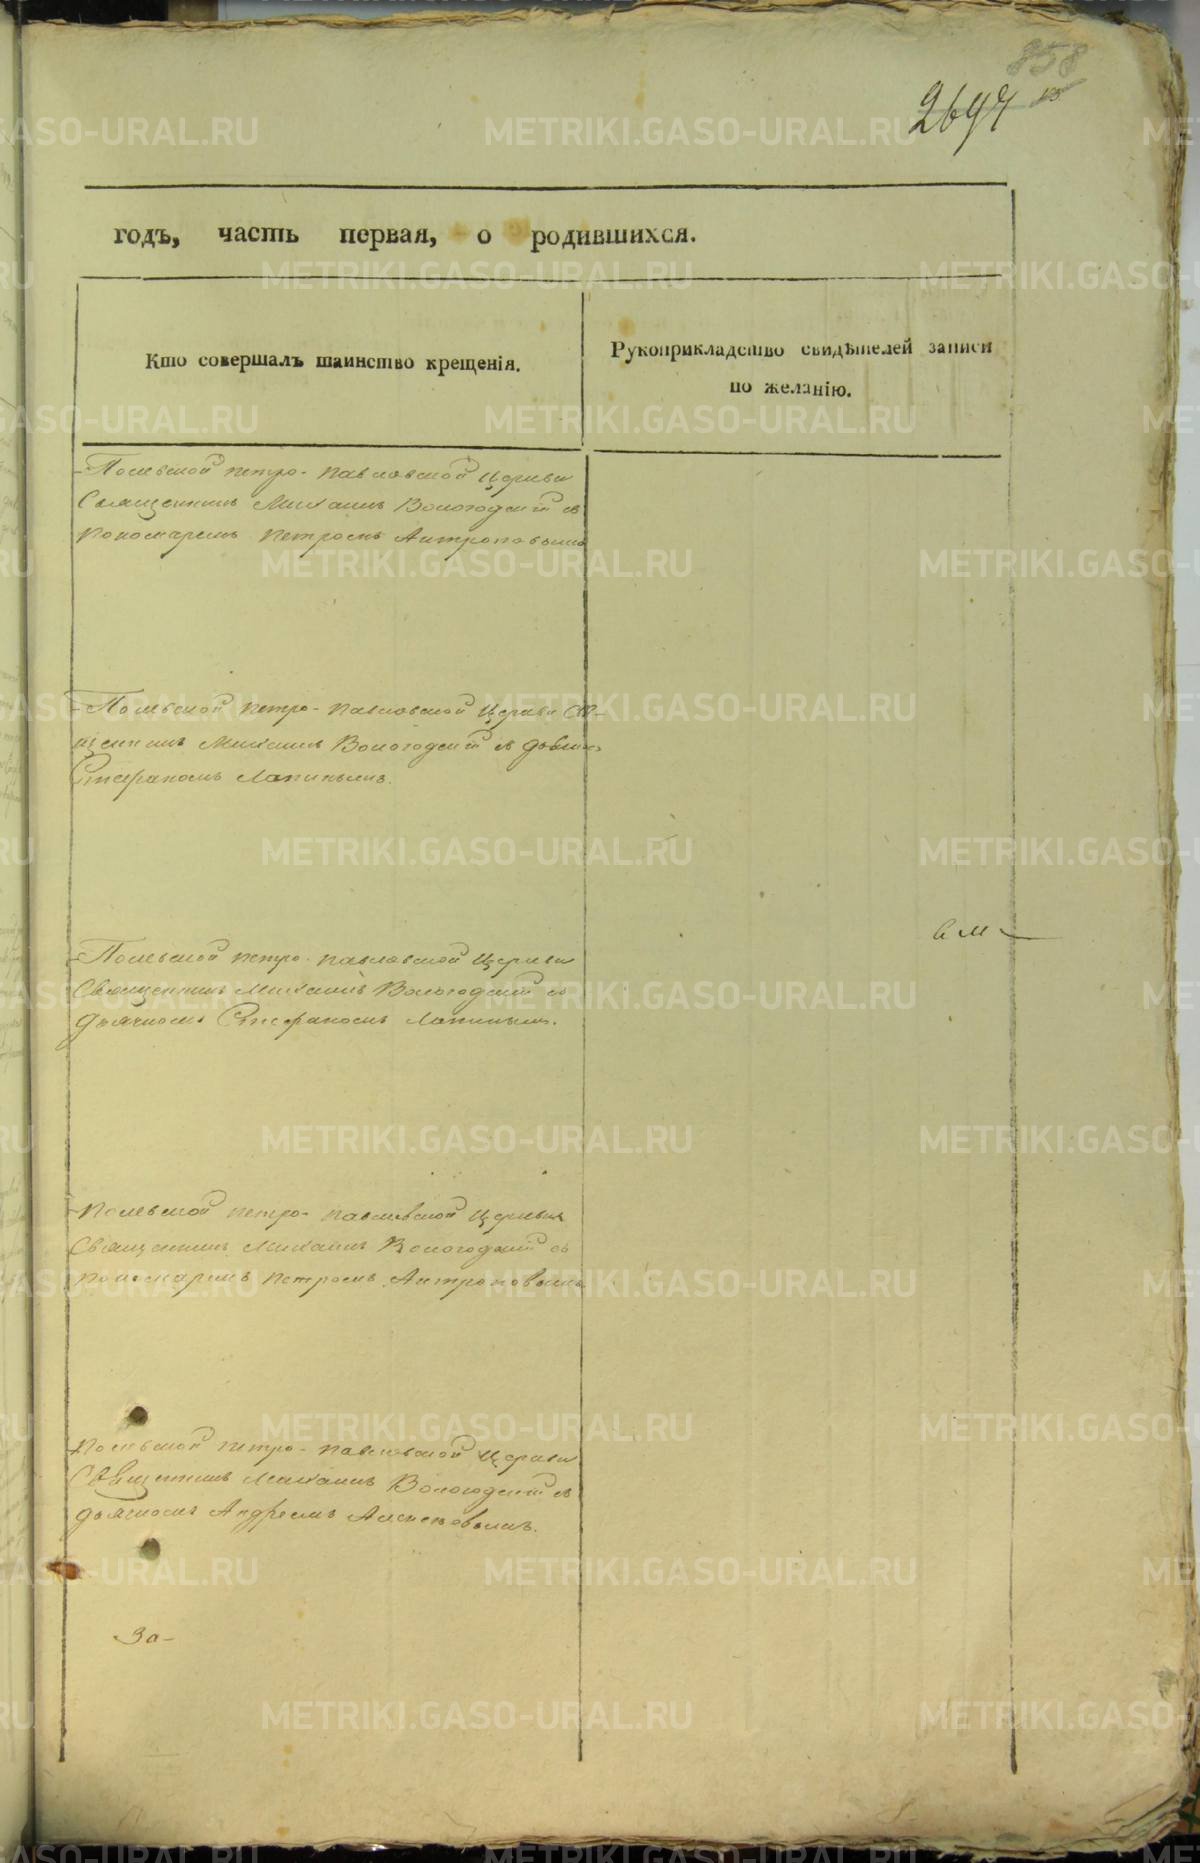 858
2697
годъ, часть первая, о родившихся.
Кто совершалъ таинство крещенія.
Рукоприкладство свидѣтелей записи
по желанію.
Полевской Петро-Павловской Церкви
Священникъ Михаилъ Вологодский съ
Пономаремъ Петромъ Антроповымъ
Полевской Петро-Павловской Церкви Свя-
щенникъ Михаилъ Вологодский съ
Стефаномъ Лапинымъ.
Полевской Петро-Павловской Церкви
Священникъ Михаилъ Вологодский съ
дьячкомъ Стефаномъ Лапинымъ.
Полевской Петро-Павловской Церкви
Священникъ Михаилъ Вологодский съ
пономаремъ Петромъ Антроповымъ
Полевской Петро-Павловской Церкви
Священникъ Михаилъ Вологодский съ
дьячкомъ Андреемъ
За-
METRIKI.GASO-URAL.RU